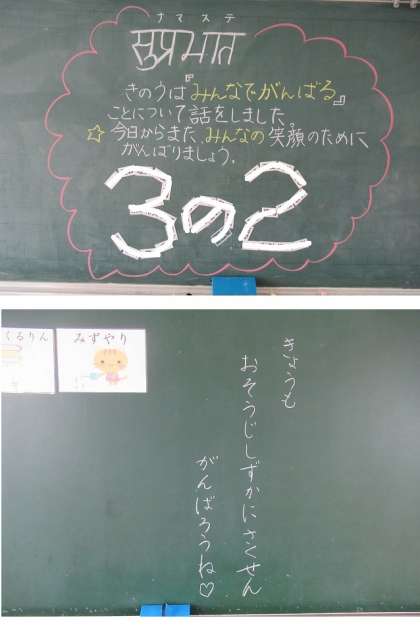 ナマステ
सुप्रभात
きのうは『みんなでがんばる』
ことについて話をしました。
☆今日からまた、みんなの笑顔のために
がんばりましょう。
3の2
くるりん
みずやり
きょうも
おそうじしずかにさくせん
がんばろうね♡